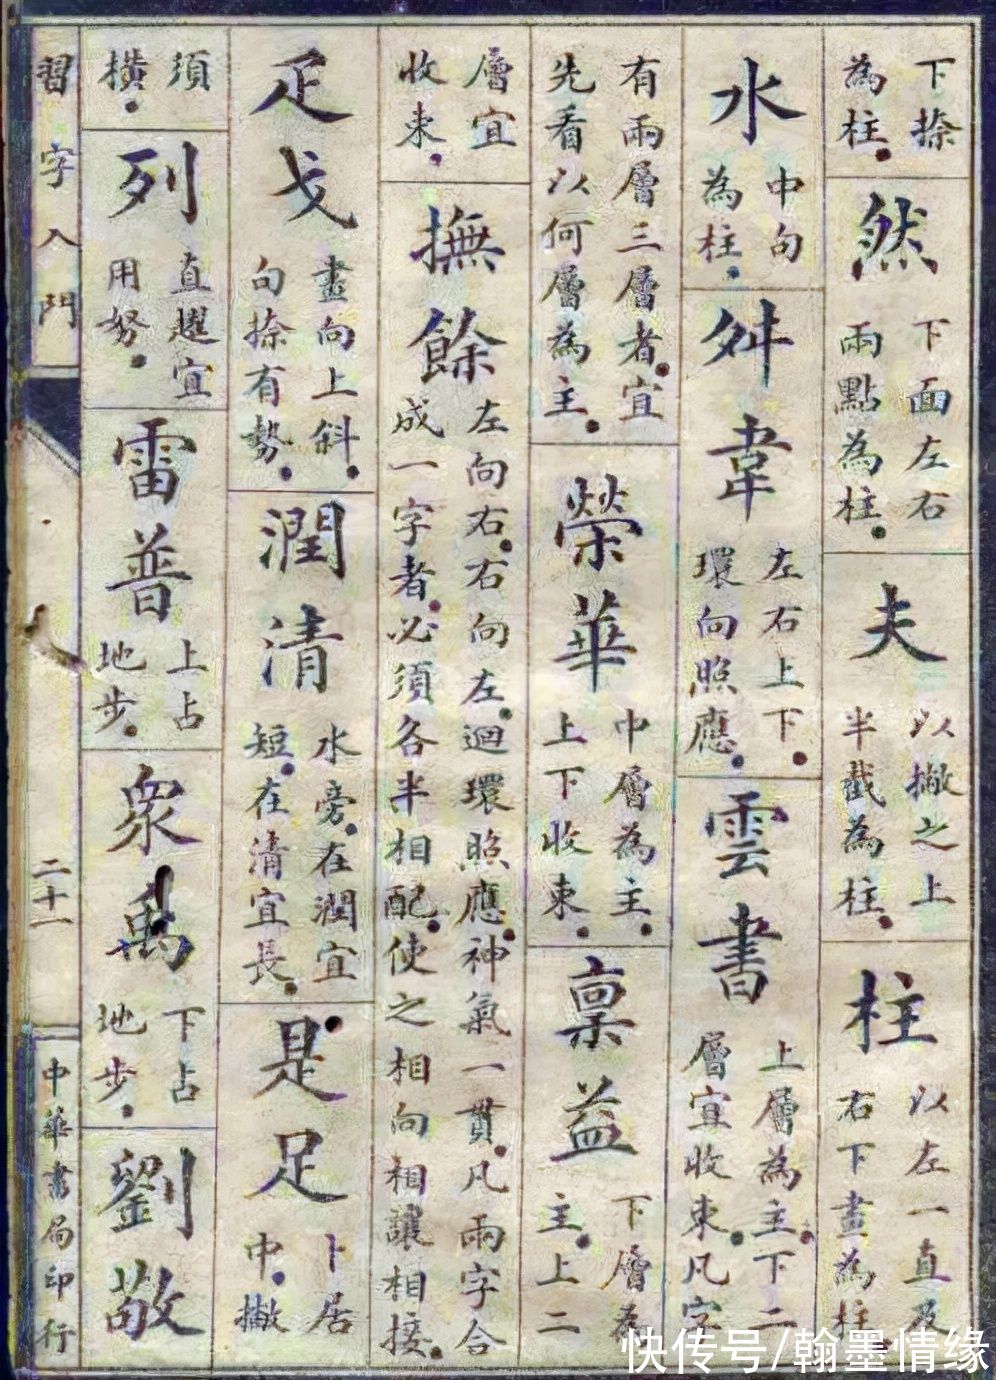 下捺
為柱。
然
下面左右
兩點為柱。
夫
以撇之上
半截為柱。
柱
以左一直及
右下畫為柱。
水
中句
為柱。
舛韋
左右上下。
環向照應。
雲書
上層為主。下二
層宜收束。凡字
有兩層三層者。宜
先看以何層為主。
榮華
中層為主。
上下收束。
稟益
下層為
主。上二
層宜
收束。
撫餘
左向右。右向左。迴環照應。神氣一貫。凡兩字合
成一字者。必須各半相配。使之相向相讓相接。
疋戈
畫向上斜。
句捺有勢。
潤清
水旁。在潤宜
短。在清宜長。
是足
卜居
中。撇
須
橫。
列
直趯宜
用努。
雷普
上占
地步。
眾禹
下占
地步。
劉敬
習字入門
二十一
中華書局印行
快传号/翰墨情缘